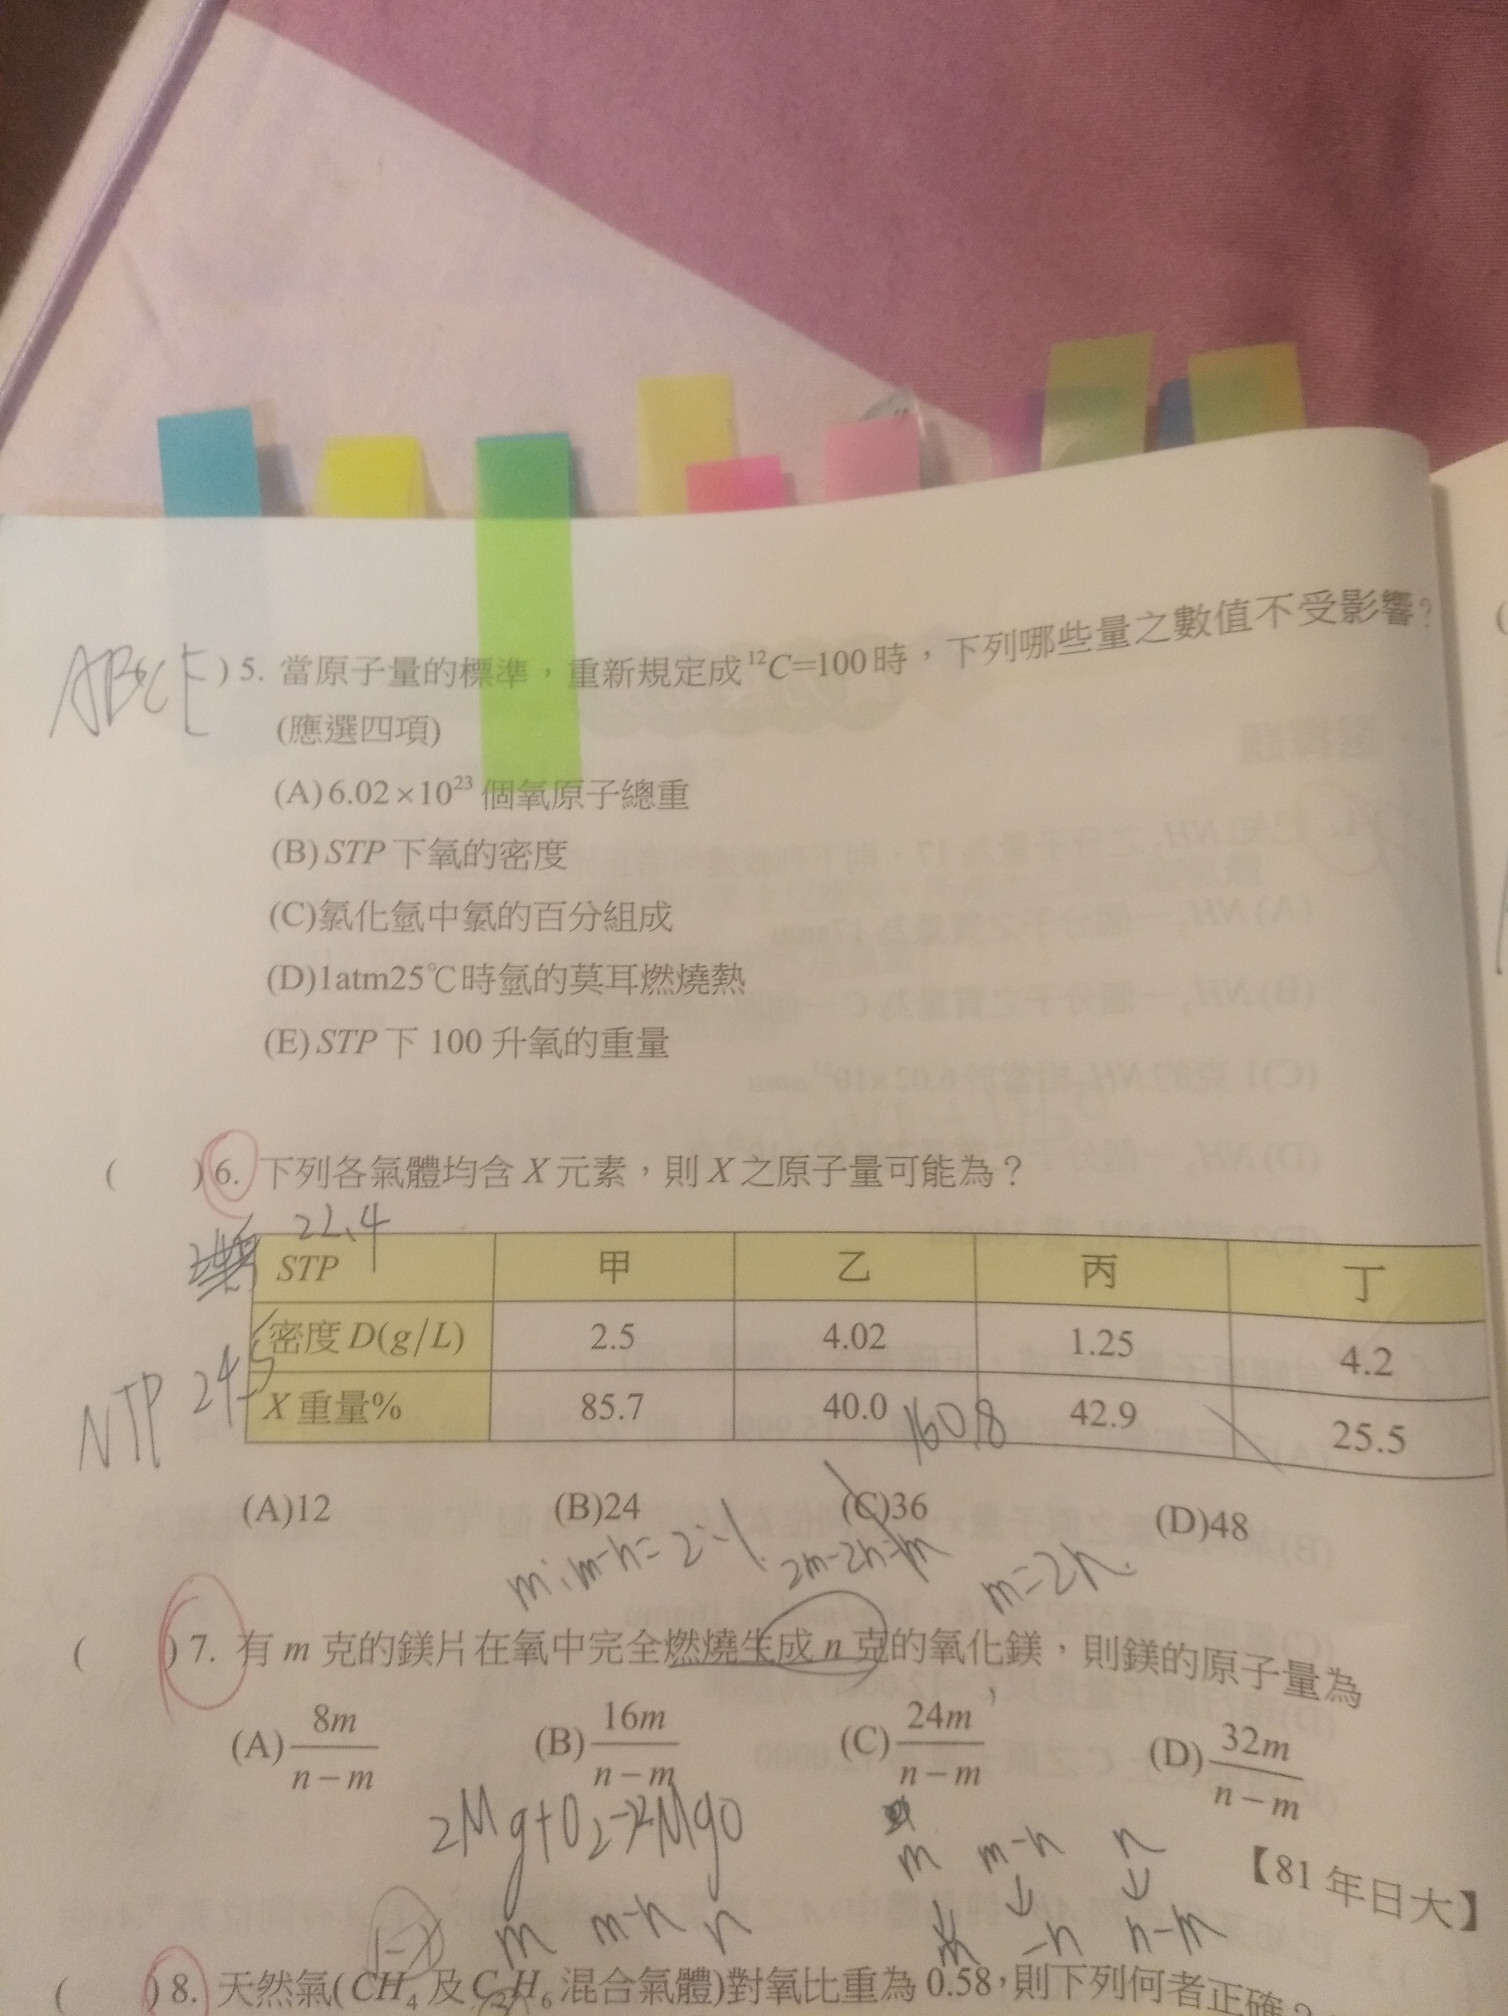 ABCE
) 5. 當原子量的標準，重新規定成 ¹²C=100 時，下列哪些量之數值不受影響？
(應選四項)
(A) 6.02×10²³ 個氧原子總重
(B) STP 下氧的密度
(C)氯化氫中氯的百分組成
(D)1atm25℃時氫的莫耳燃燒熱
(E) STP 下 100 升氧的重量
( ) 6. 下列各氣體均含 X 元素，則 X 之原子量可能為？
22.4
STP 甲 乙 丙 丁
密度 D(g/L) 2.5 4.02 1.25 4.2
NTP 24.5
X 重量% 85.7 40.0 42.9 25.5
160.8
(A)12 (B)24 (C)36 (D)48
m:m-n=2:1 2m-2n=m m=2n
( ) 7. 有 m 克的鎂片在氧中完全燃燒生成 n 克的氧化鎂，則鎂的原子量為
(A) 8m/(n−m) (B) 16m/(n−m) (C) 24m/(n−m) (D) 32m/(n−m)
2Mg+O₂→2MgO
m m-n n
【81 年日大】
m m-n n
m -n n-m
1-x
( ) 8. 天然氣(CH₄ 及 C₂H₆ 混合氣體)對氧比重為 0.58，則下列何者正確？